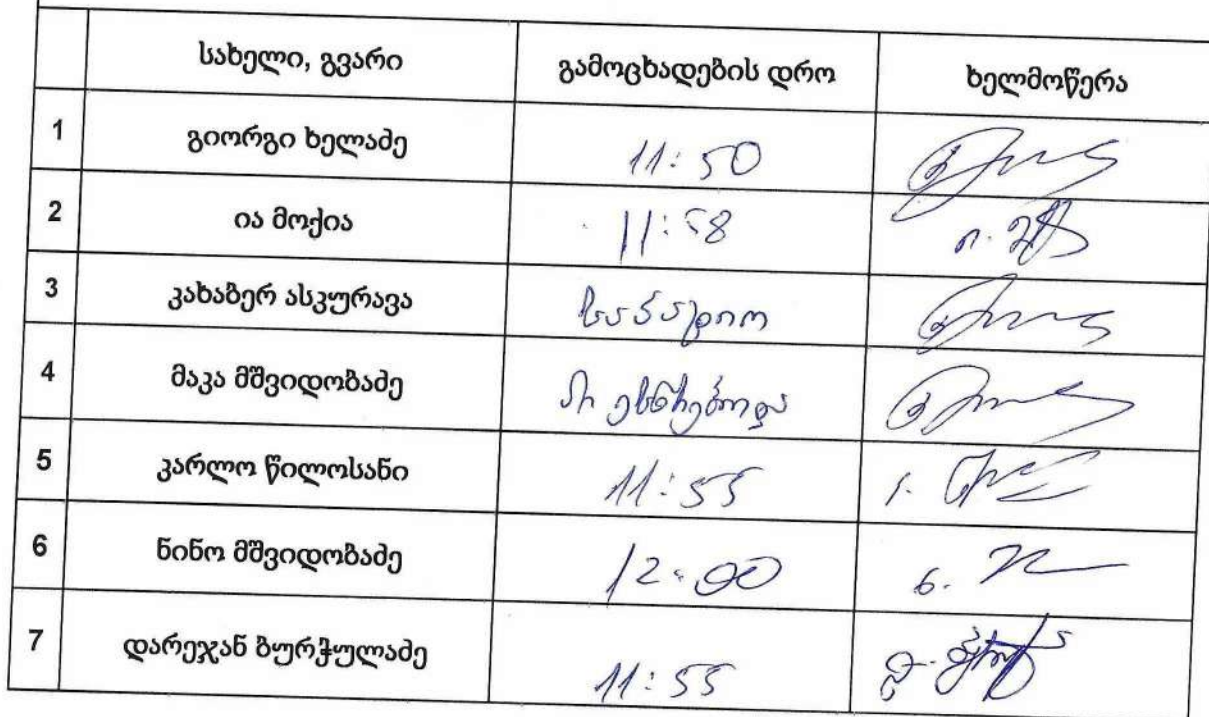 სახელი, გვარი გამოცხადების დრო ხელმოწერა
1 გიორგი ხელაძე 11:50
2 ია მოქია 11:58
3 კახაბერ ასკურავა საპატიო
4 მაკა მშვიდობაძე არ ესწრებოდა
5 კარლო წილოსანი 11:55
6 ნინო მშვიდობაძე 12:00
7 დარეჯან ბურჭულაძე 11:55